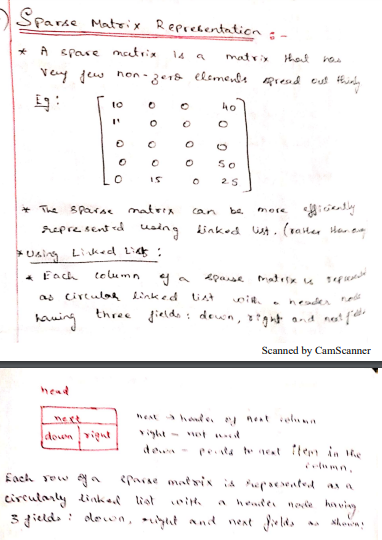 Sparse Matrix Representation :-
* A sparse matrix is a matrix that has
very few non-zero elements spread out thinly
Eg :
10 0 0 40
11 0 0 0
0 0 0 0
0 0 0 50
0 15 0 25
* The sparse matrix can be more efficiently
represented using linked list. (rather than
* Using Linked List :
* Each column of a sparse matrix is
as circular linked list with a header node
having three fields : down, right and next
Scanned by CamScanner
head
next
down right
next → header of next column
right - not used
down - points to next item in the
column.
Each row of a sparse matrix is represented as a
circularly linked list with a header node having
3 fields : down, right and next fields as shown: